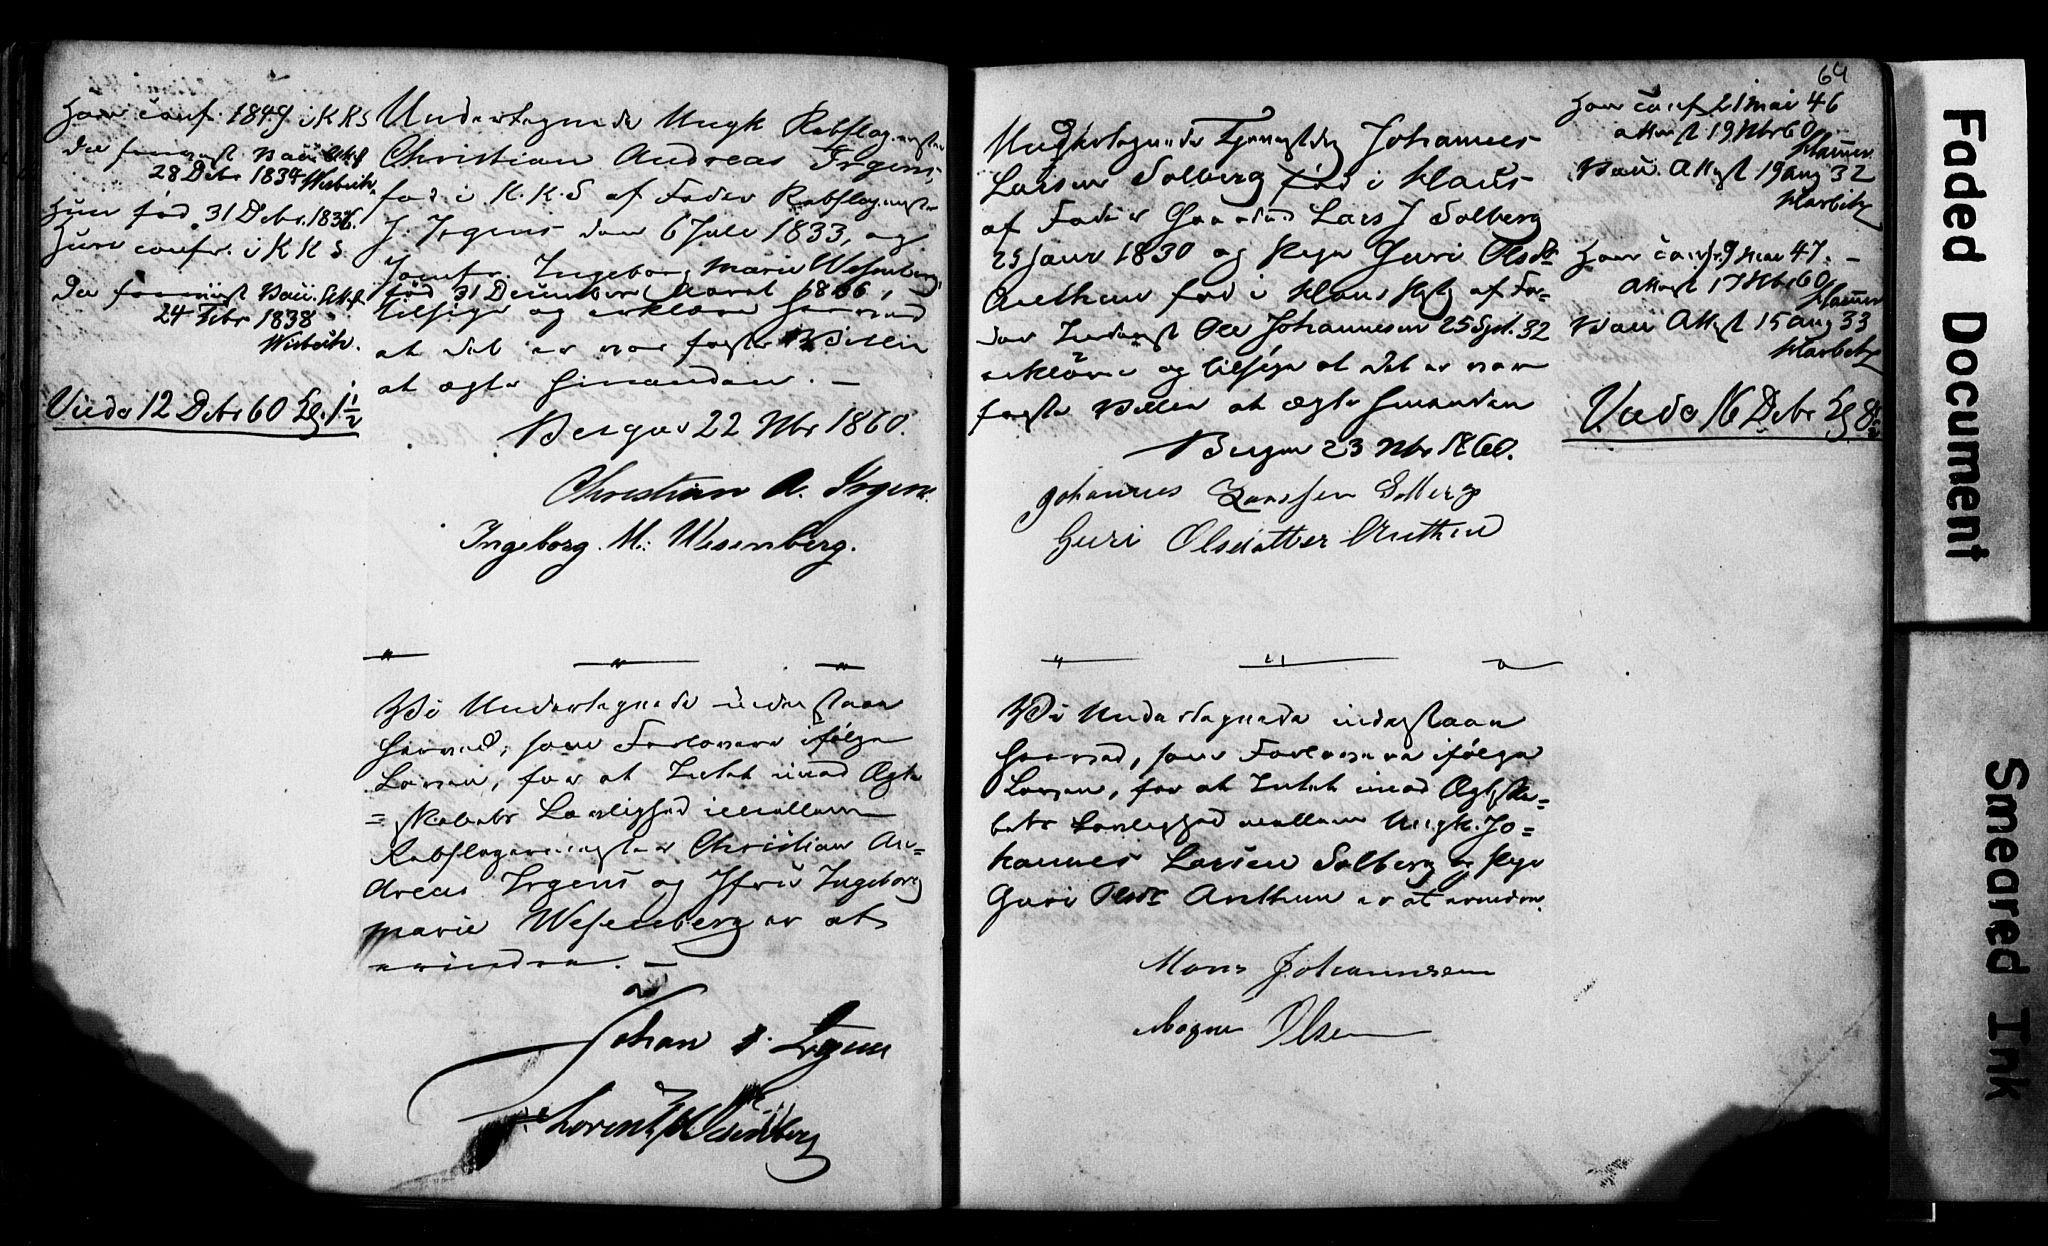 Han conf. 1849 i KKS
28 Debr 1834 Wesbeich.
Hun fød 31 Debr. 1836.
Hun conf. i KKS
24 Febr 1838
Wesbeich.
Viede 12 Debr 60 Kl. 1 1/2
Undertegnede Ungk Rebslag.mester
Christian Andreas Irgens,
fød i K.K.S af Fader Rebslag.mester
J. Irgens den 6 Juli 1833, og
Jomfr. Ingeborg Marie Wesenberg,
født 31 December Aaret 1836,
tilsige og erklære herved
at det er vor faste Villie
at ægte hinanden. —
Bergen 22 Nbr 1860.
Christian A. Irgens.
Ingeborg. M: Wesenberg.
Vi Undertegnede indestaae
herved, som Forlovere ifølge
Loven, for at Intet imod Ægte
= skabets Lovlighed imellem
Rebslagermester Christian An=
dreas Irgens og Jfru Ingeborg
Marie Wesenberg er at
erindre. —
Johan J. Irgens
Lorentz Wesenberg
64
Ungk Johannes
Larsen Solberg fød i Haus
af Fader Gaardmd Lars J Solberg
25 Janr 1830 og Pige Guri Olsdtr
Arethun fød i Haus af Fa=
der Ole Johannesen 25 Spt. 32
erklære og tilsige at det er vor
faste Villie at ægte hinanden
Bergen 23 Nbr 1860.
Johannes Larssen Solberg
Guri Olsdatter
Vi Undertegnede indestaae
herved, som Forlovere ifølge
Loven, for at Intet imod Ægteska=
bets Lovlighed mellem Ungk. Jo=
hannes Larsen Solberg og Pige
Guri Olsdtr Arethun er at erindre.
Mons Johannesen
Magne Olsen
Han conf 21 Mai 46
Attest 19 Nbr 60
Vacc. Attest 19 aug 32
conf. 9 Mai 47. —
Attest 17 Nbr 60
Vacc Attest 15 aug 33
Viede 16 Debr Kl
Faded Document
Smeared Ink